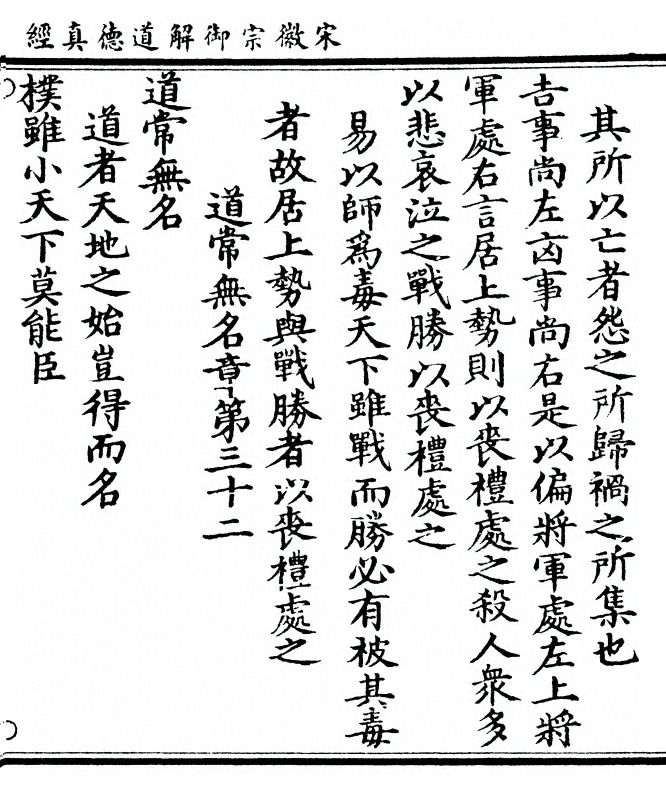 宋徽宗御解道德真經
其所以亡者怨之所歸禍之所集也
吉事尚左凶事尚右是以偏將軍處左上將
軍處右言居上勢則以喪禮處之殺人衆多
以悲哀泣之戰勝以喪禮處之
易以師爲毒天下雖戰而勝必有被其毒
者故居上勢與戰勝者以喪禮處之
道常無名章第三十二
道常無名
道者天地之始豈得而名
樸雖小天下莫能臣